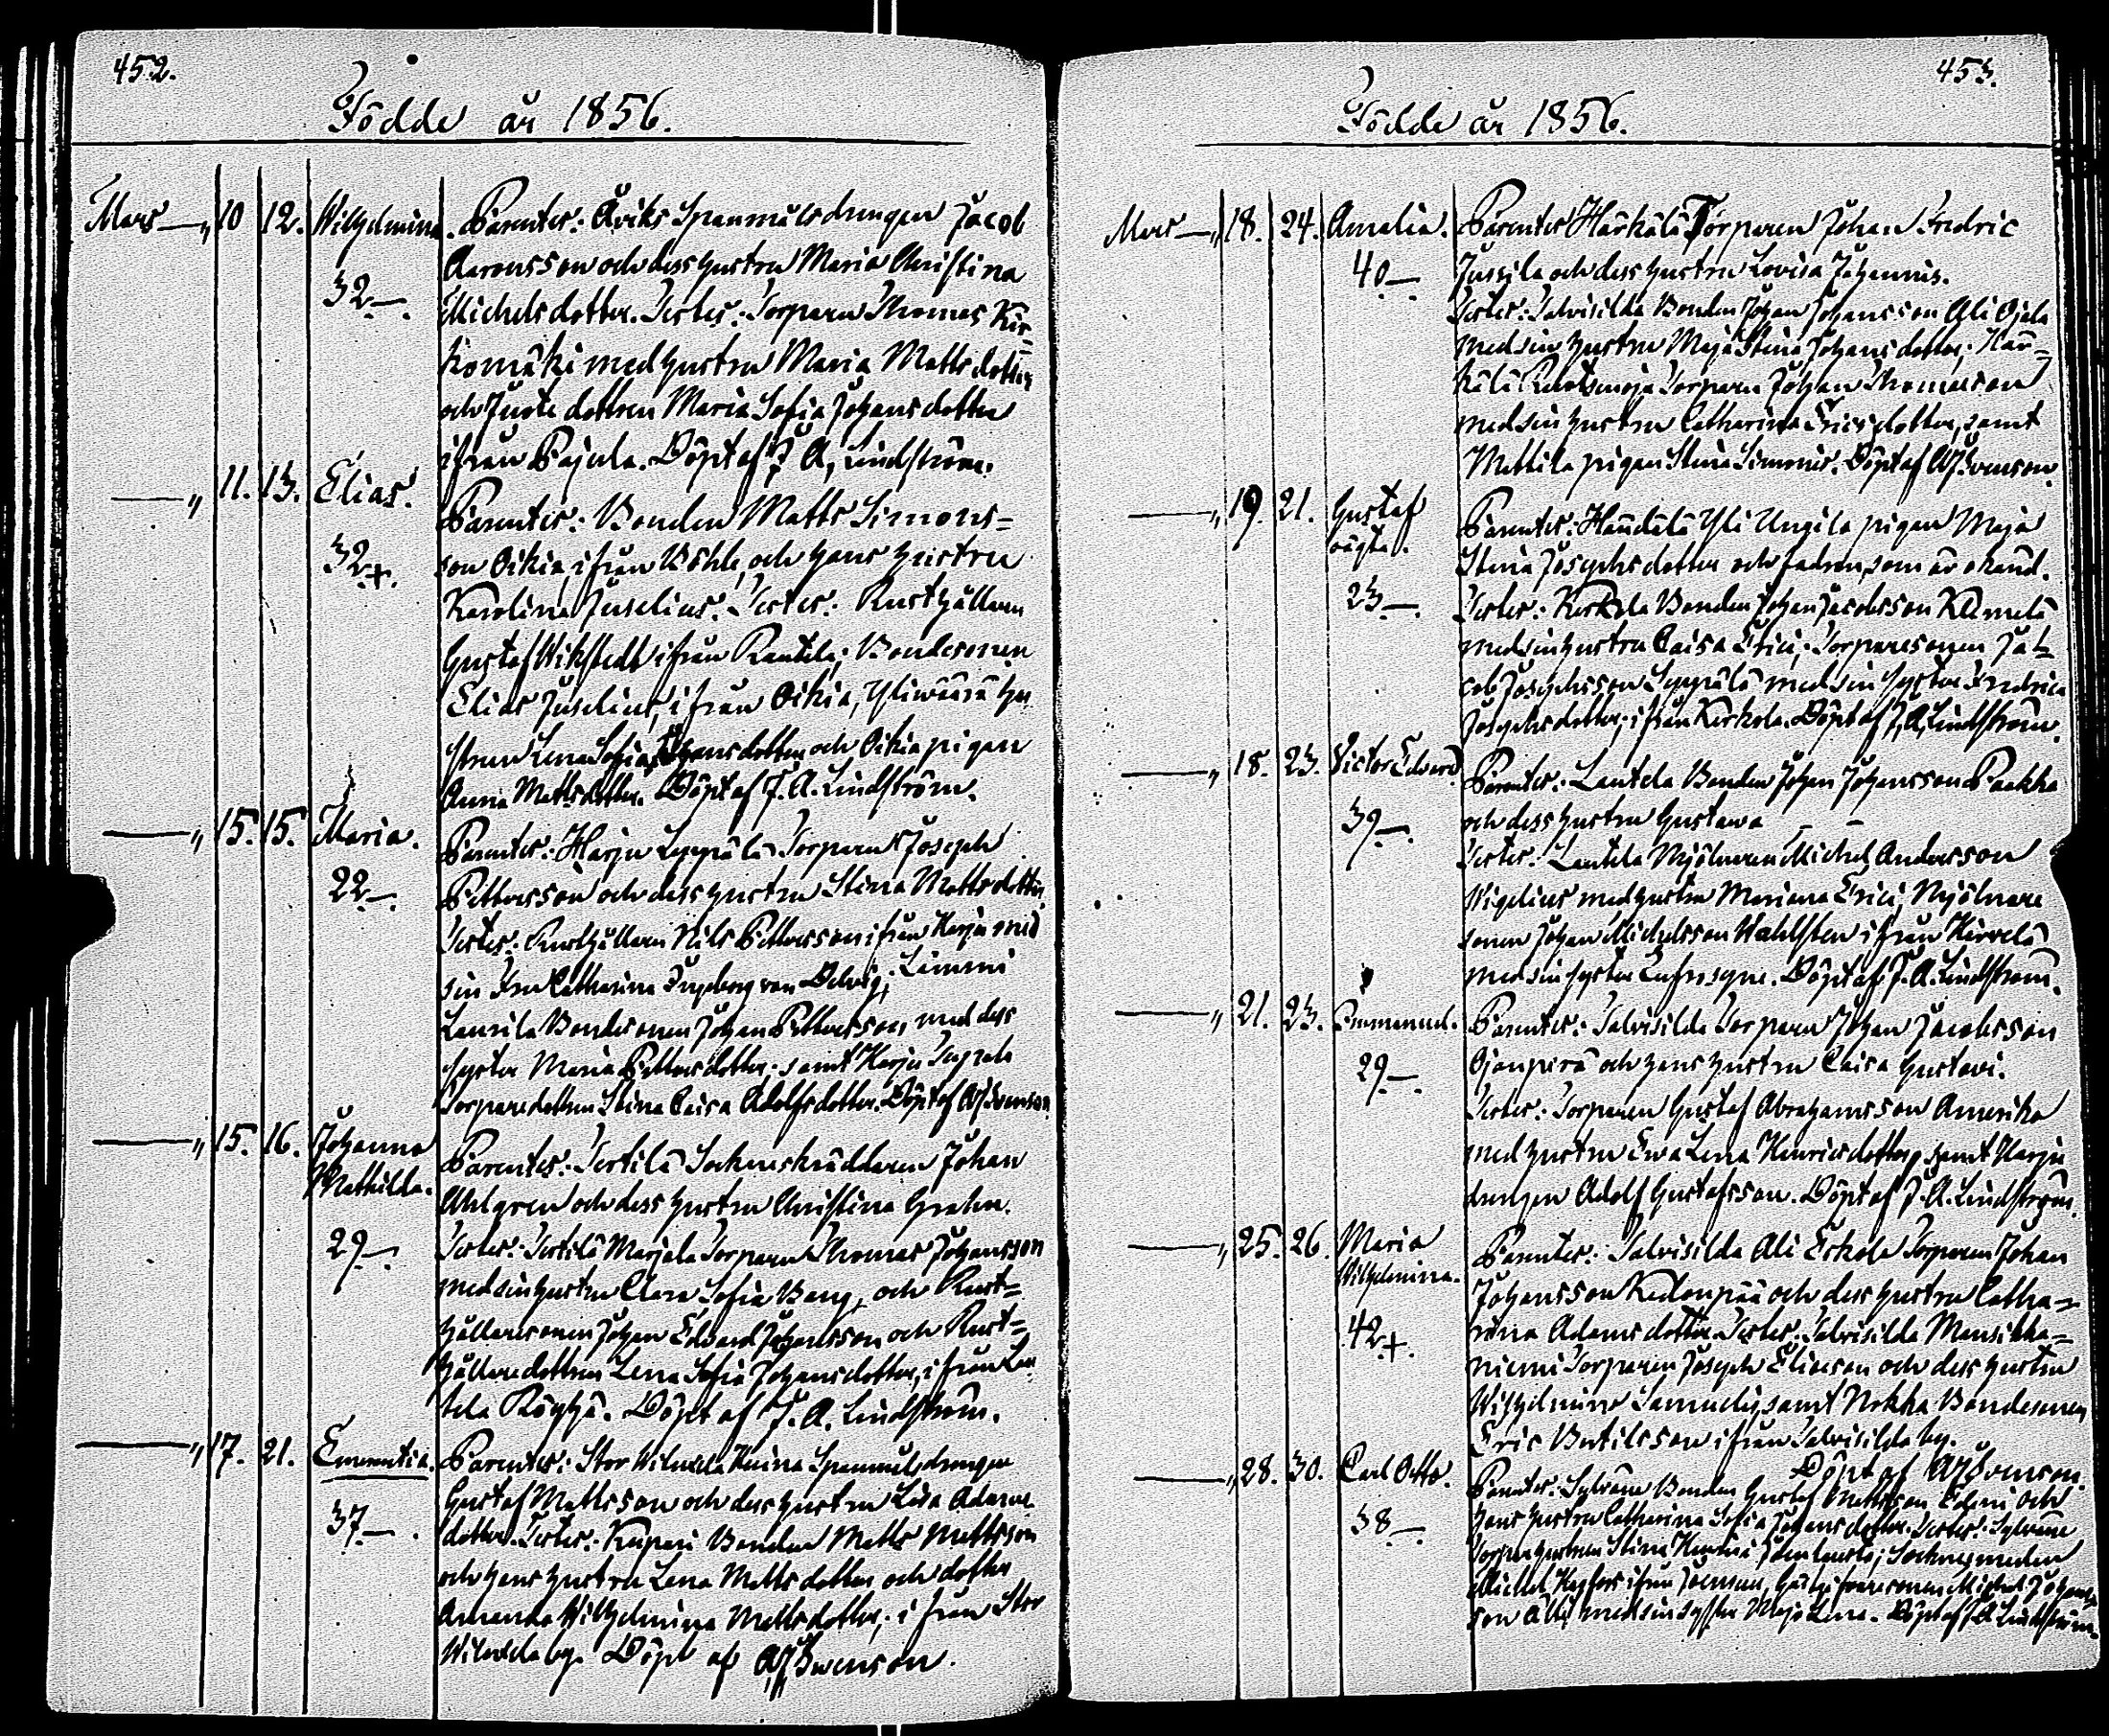 452.
Födde år 1856.
Mars — „ 10 12. Wilhelmina. Parentes: Äviks Spanmålsdrengen Jacob
Aaronsson och dess hustru Maria Christina
32.—. Michelsdotter. Testes: Torparen Thomas Kir-
komäki med hustru Maria Mattsdotter
och Juote dottren Maria Sofia Johansdotter
ifrån Pajula. Döpt af J. A. Lindström.
— „ 11. 13. Elias. Parentes: Bonden Matts Simons=
32.+. son Oikia, ifrån och hans hustru
Karolina Juselius. Testes: Rusthållaren
Gustaf Wikstedt ifrån Rautela; Bondesonen
Elias Juselius, ifrån Oikia, Yliwäärä hu
strun Lena Sofia Johansdotter och Oikia pigan
Anna Mattsdotter. Döpt af J. A. Lindström.
— „ 15. 15. Maria. Parentes: Harju Seppälä Torparen Joseph
22.—. Pettersson och dess hustru Stina Mattsdotter
Testes: Rusthållaren Nils Pettersson ifrån Harju med
sin Fru Catharina Ingeborg von Delwig; Lemmi
Laurila Bondesonen Johan Pettersson, med dess
syster Maria Pettersdotter; samt Harju
Torparedottren Stina Caisa Adolfsdotter. Döpt af Swenson
— „ 15. 16. Johanna
Mathilda. Parentes: Tertilä Sockneskräddaren Johan
Ahlgren och dess hustru Christina Grahn.
29.—. Testes: Tertilä Marjala Torparen Thomas Johansson
med sin hustru Clara Sofia Berg, och Rust=
hållaresonen Johan Edvard Johansson och Rust=
hållaredottren Lena Sofia Johansdotter, ifrån Lau
tela Röyhä. Döpt af J. A. Lindström.
— „ 17. 21. Emmentia. Parentes: Stor Wiluxela Knina Spanmålsdrengen
Gustaf Mattsson och dess hustru Lisa Adams
37.—. dotter. Testes: Kupari Bonden Matts Mattsson
och hans hustru Lena Mattsdotter och dotter
Amanda Wilhelmina Mattsdotter, ifrån Stor
Wiluxela by. Döpt af Swenson.
453.
Födde år 1856.
Mars — „ 18. 24. Amalia. Parentes Härkälä Torparen Johan Fredric
40.— Jussila och dess hustru Lovisa Johannis.
Testes: Salvisilda Bonden Johan Johansson Ali Ojala
med sin hustru Maja Stina Johansdotter; Här=
kälä Torparen Johan Thomasson
med sin hustru Catharina Ericsdotter, samt
Mattila pigan Stina Simonis. Döpt af Swenson.
— „ 19. 21. Gustaf
oägta. Parentes: Handelä Yli Ungila pigan Maja
Stina Josephsdotter och fadren, som är okänd.
23.—. Testes: Kerkola Bonden Johan Jacobsson Klemelä
med sin hustru Caisa Erici; Torparesonen Ja=
cob Josephsson Seppälä med sin syster Fredrica
Josephsdotter, ifrån Kerkola. Döpt af J. A. Lindström.
— „ 18. 23. Victor Edvard. Parentes: Lautela Bonden Johan Johansson Paakka
39.—. och dess hustru Gustawa — —
Testes: Lautela Mjölnaren Michel Andersson
Wigelius med hustru Mariana Erici; Mjölnare
sonen Johan Michelsson Wahlsten ifrån Hirvelä
med sin syster Eufrosyne. Döpt af J. A. Lindström.
— „ 21. 23. Emmanuel. Parentes: Salvisilda Torparen Johan Jacobsson
29.—. Ojanperä och hans hustru Caisa Gustavi.
Testes: Torparen Gustaf Abrahamsson Amerika
med hustru Ewa Lena Henricsdotter, samt Harju
drengen Adolf Gustafsson. Döpt af J. A. Lindström.
— „ 25. 26. Maria
Wilhelmina. Parentes: Salvisilda Ali Eskola Torparen Johan
Johansson Kedonpää och dess hustru Catha=
42.+. rina Adamsdotter. Testes: Salvisilda Mansikka=
niemi Torparen Joseph Eliasson och dess hustru
Wilhelmina Samuelis, samt Nokka Bondesonen
Eric ifrån Salvisilda by.
Döpt af Swenson.
— „ 28. 30. Carl Otto. Parentes: Sylväne Bonden Gustaf Mattsson Edeni och
38.—. hans hustru Catharina Sofia Johansdotter. Testes: Sylväne
Torparhustrun Stina ; Socknesmeden
Michel ifrån Joensuu, Gästgifvaresonen Michel Johans=
son Alli med sin syster Maja Lena. Döpt af J. A. Lindström.